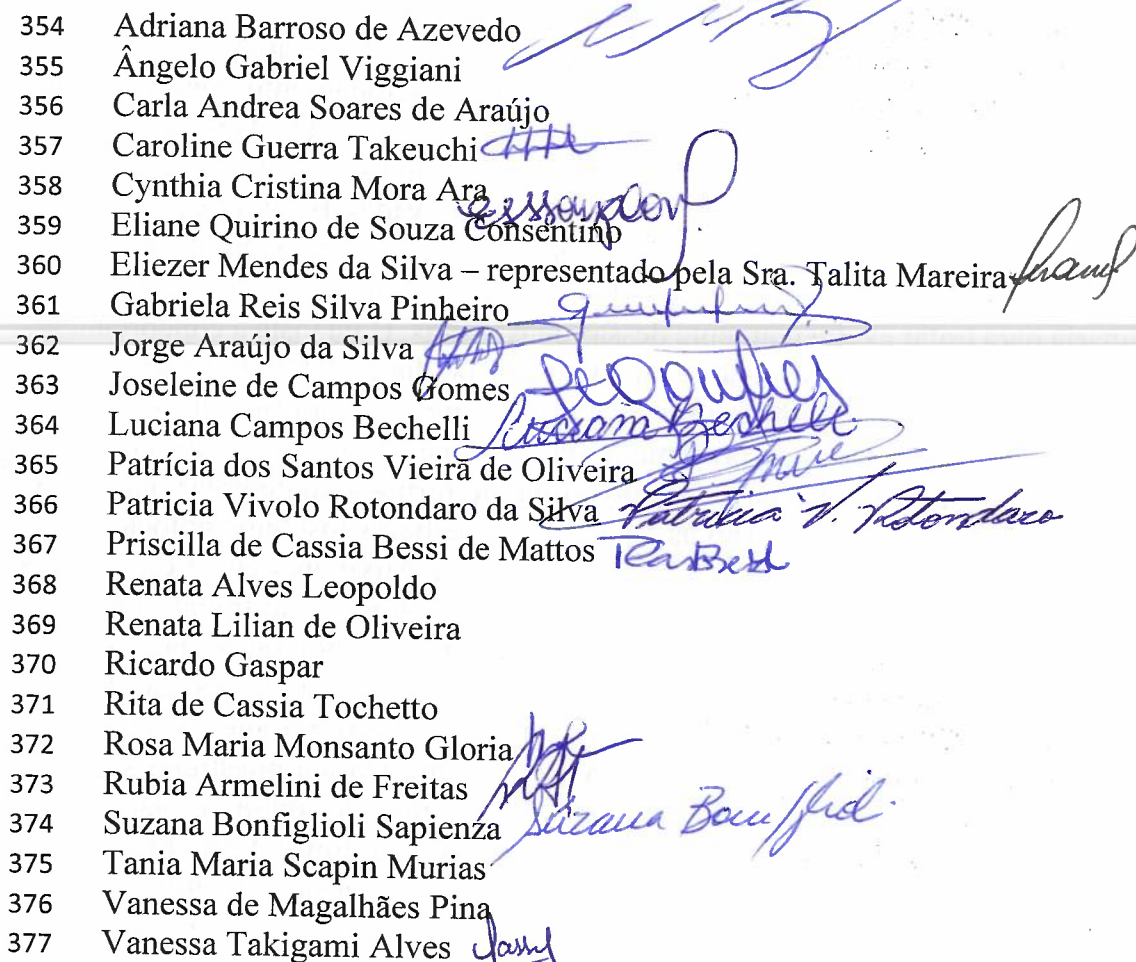 354 Adriana Barroso de Azevedo
355 Ângelo Gabriel Viggiani
356 Carla Andrea Soares de Araújo
357 Caroline Guerra Takeuchi
358 Cynthia Cristina Mora Ara
359 Eliane Quirino de Souza Consentino
360 Eliezer Mendes da Silva – representado pela Sra. Talita Mareira
361 Gabriela Reis Silva Pinheiro
362 Jorge Araújo da Silva
363 Joseleine de Campos Gomes
364 Luciana Campos Bechelli Luciana Bechelli
365 Patrícia dos Santos Vieira de Oliveira
366 Patricia Vivolo Rotondaro da Silva Patricia V. Rotondaro
367 Priscilla de Cassia Bessi de Mattos
368 Renata Alves Leopoldo
369 Renata Lilian de Oliveira
370 Ricardo Gaspar
371 Rita de Cassia Tochetto
372 Rosa Maria Monsanto Gloria
373 Rubia Armelini de Freitas
374 Suzana Bonfiglioli Sapienza Suzana
375 Tania Maria Scapin Murias
376 Vanessa de Magalhães Pina
377 Vanessa Takigami Alves